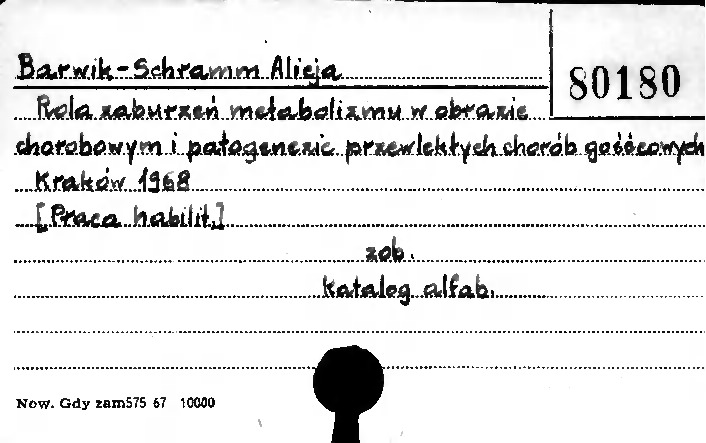 Barwik-Schramm Alicja
80180
Rola zaburzeń metabolizmu w obrazie
chorobowym i patogenezie przewlekłych chorób gośćcowych
Kraków 1968
[Praca habilit.]
zob.
katalog alfab.
Now. Gdy zam575 67 10000